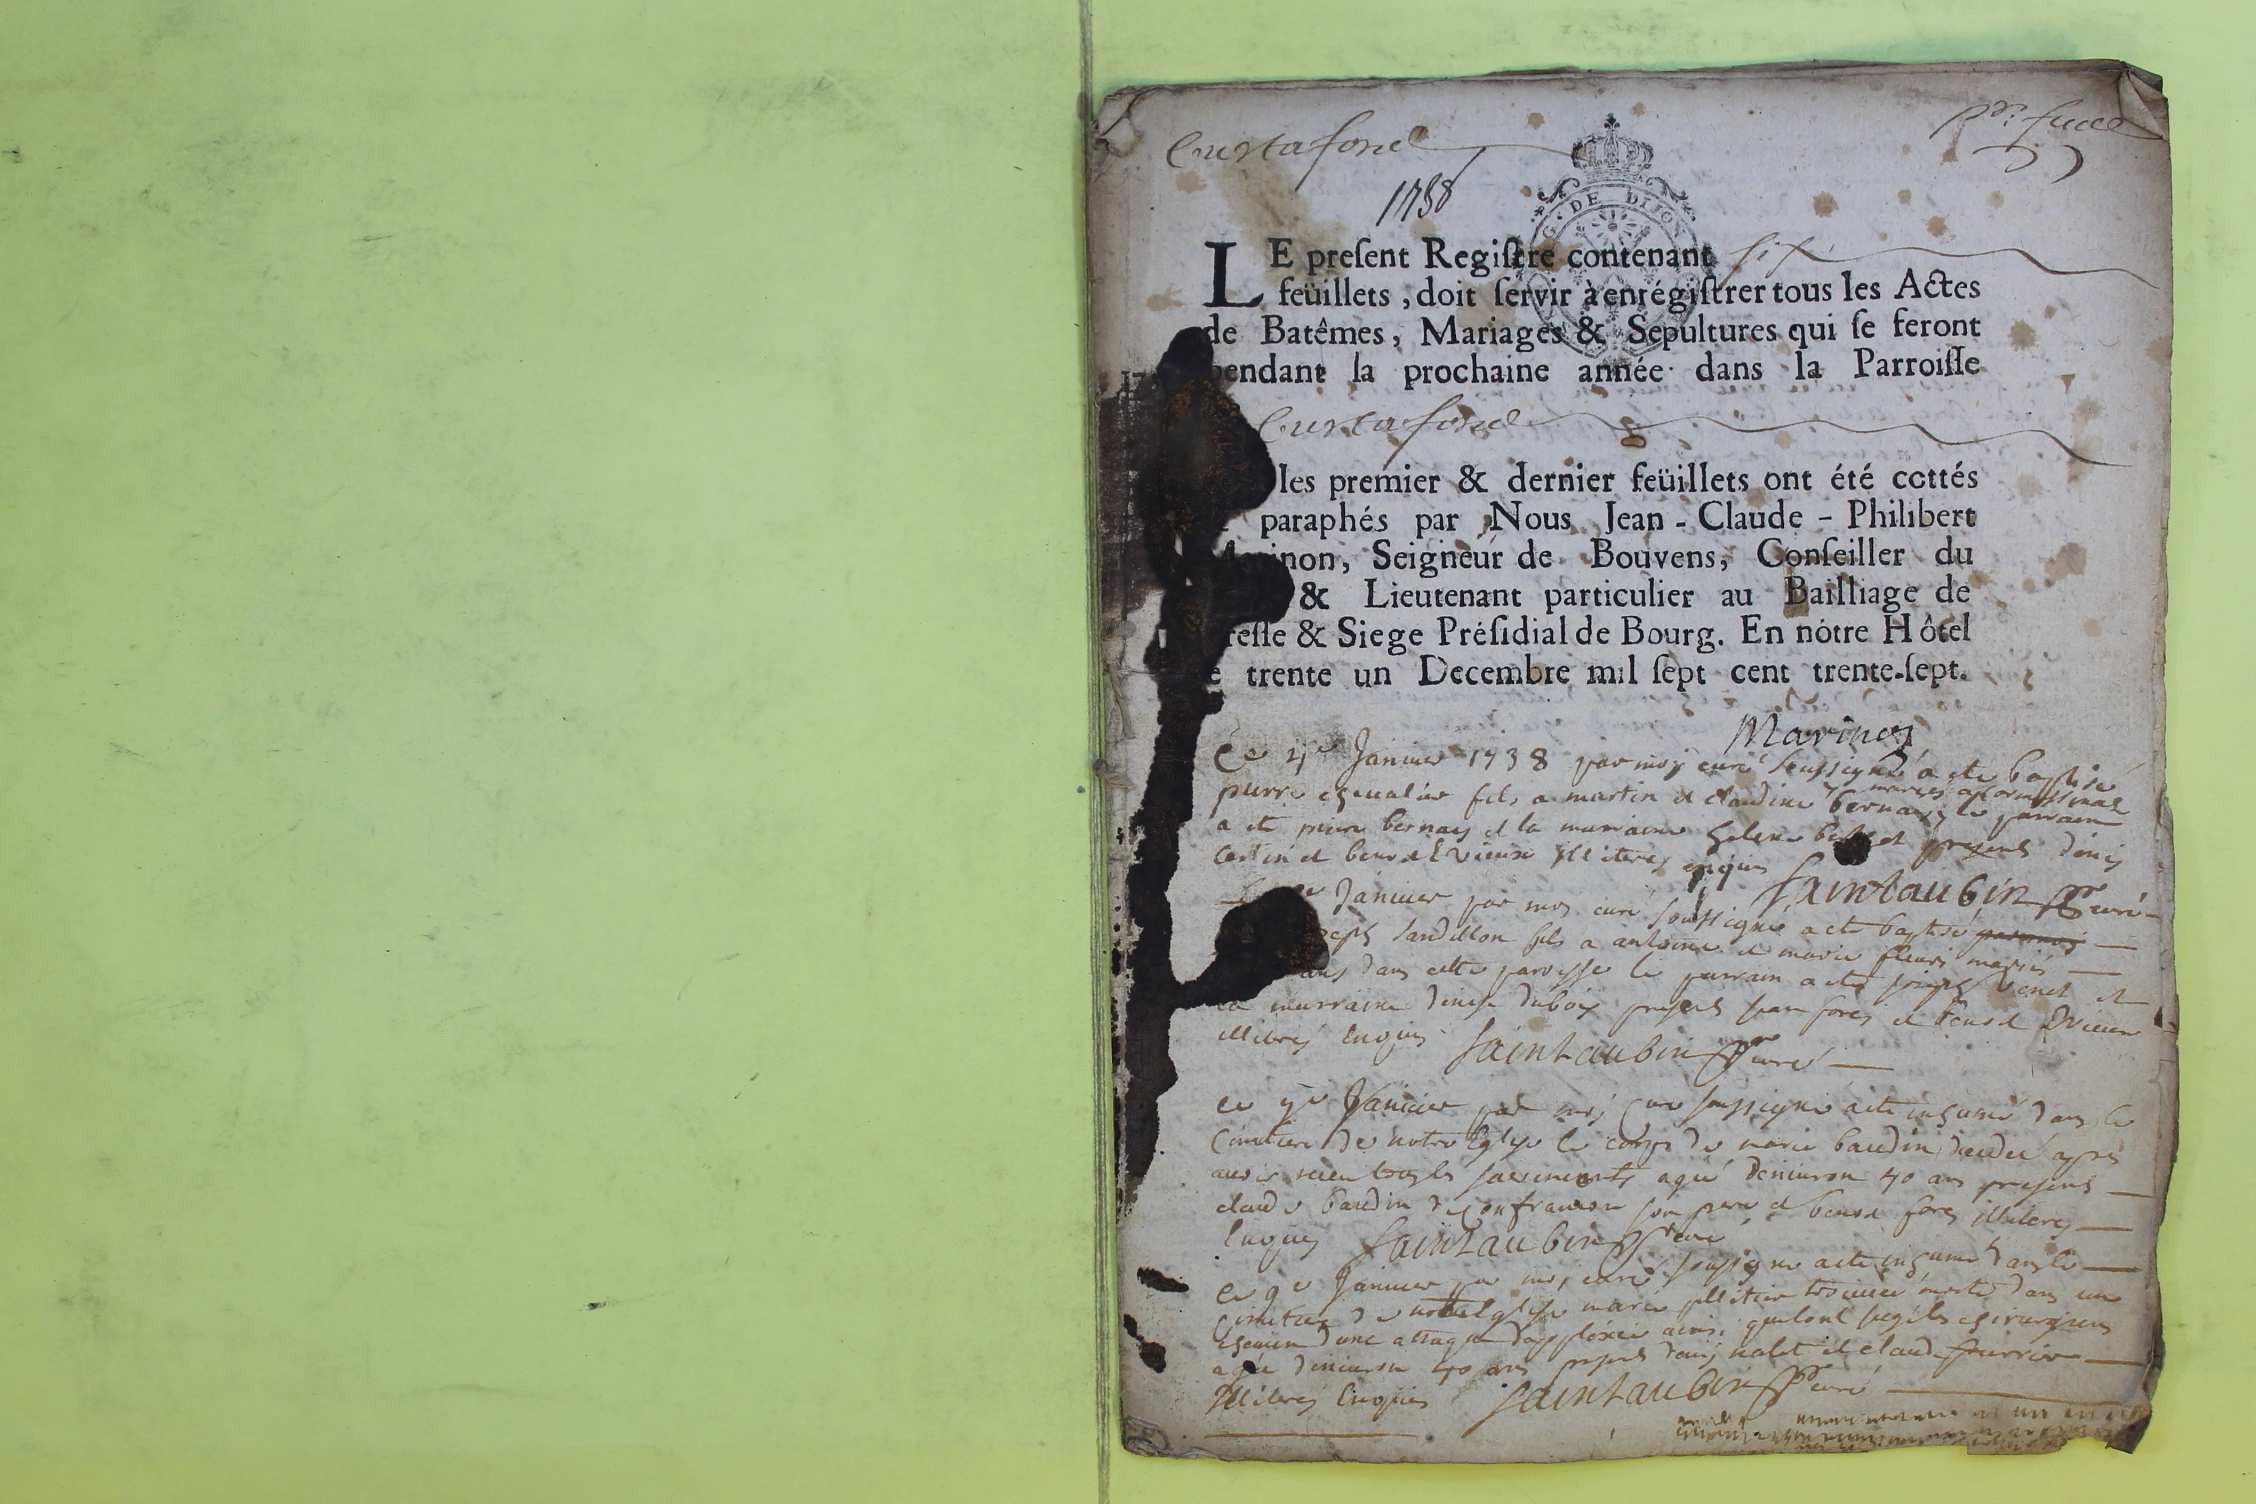 Curtafond
1738
G. DE DIJON
LE preſent Regiſtre contenant six
feüillets, doit ſervir à enrégiſtrer tous les Actes
de Batêmes, Mariages & Sepultures qui ſe feront
pendant la prochaine année dans la Parroiſſe
Curtafond
les premier & dernier feüillets ont été cottés
paraphés par Nous Jean-Claude-Philibert
Marinon, Seigneur de Bouvens, Conſeiller du
& Lieutenant particulier au Bailliage de
reſſe & Siege Préſidial de Bourg. En nôtre Hôtel
e trente un Decembre mil ſept cent trente-ſept.
Marinon
Ce 4e Janvier 1738 par moy curé soussigné a été baptisé
pierre chevalier fils a martin et claudine bernay le parrain
a été bernay et la marraine helene presents denis
et benoit vieux illiteres enquis
Saintaubin ptre curé
Janvier par moy curé soussigné a été baptisé
joseph sandillon fils a antoine et marie fleuri mariés
dans cette paroisse le parrain a été joseph venet et
la marraine denise duboix presents jean forey et benoit vieux
illiteres enquis Saintaubin ptre curé
Ce Janvier par moy curé soussigné a été inhumé dans le
cimitiere de notre Eglise le corps de marie baudin decedée après
avoir receu tous les sacrements agée d'environ 40 ans presents
claude baudin de confrançon son pere et benoit forey illiteres
enquis Saintaubin ptre curé
Ce 9e Janvier par moy curé soussigné a été inhumé dans le
cimitiere de notre Eglise marie morte dans un
chemin d'une attaque d'applexie ainsi que l'ont jugé les chirurgiens
agée d'environ 40 ans presents denis nalet et claude
illiteres enquis Saintaubin ptre curé